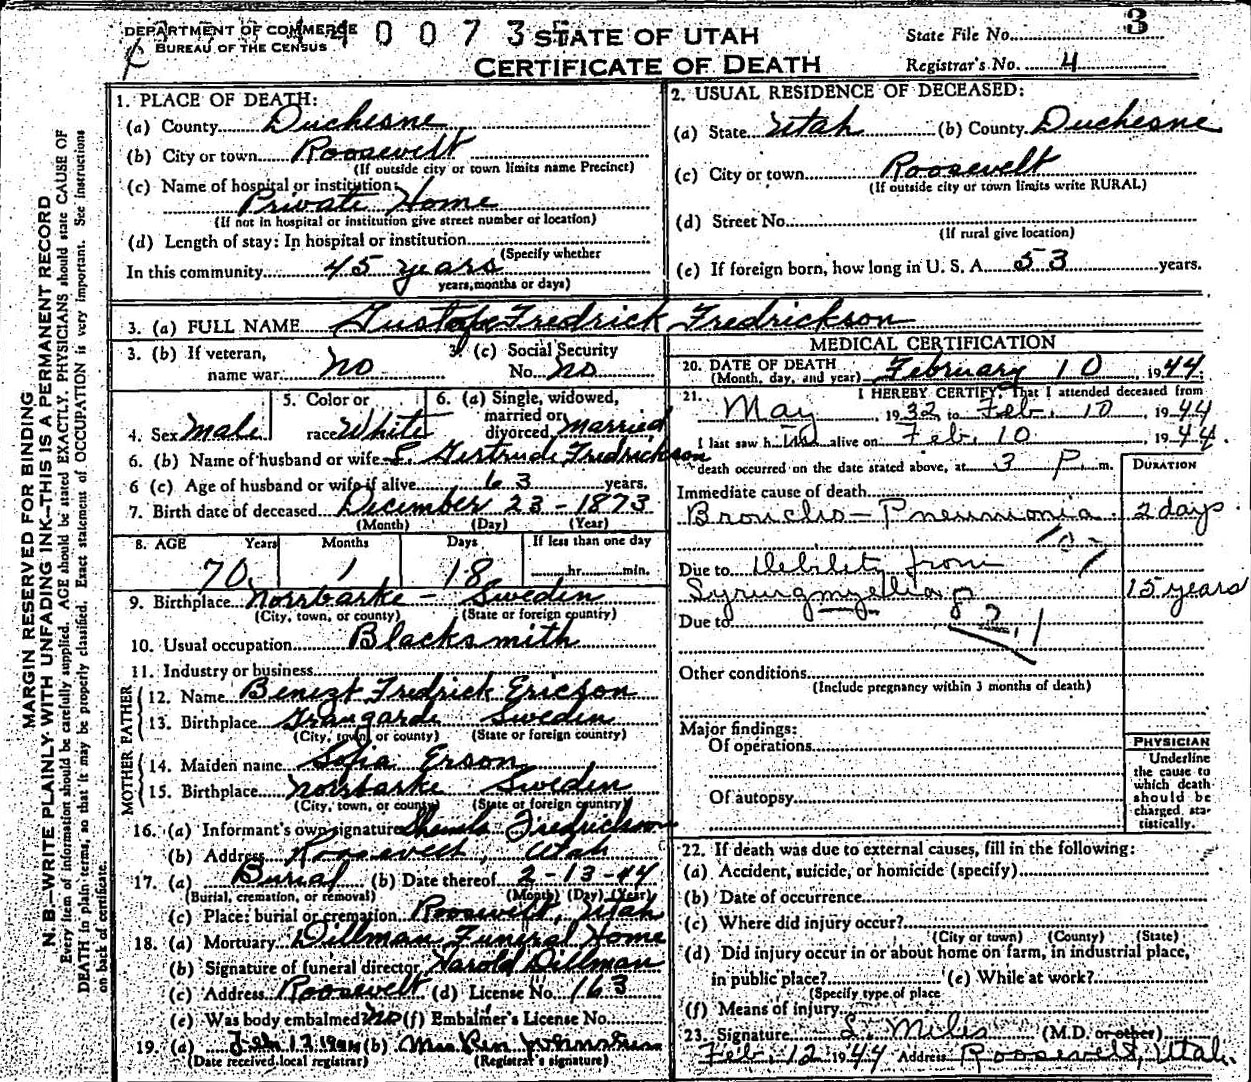 DEPARTMENT OF COMMERCE
BUREAU OF THE CENSUS
4 0 0 7 3 5
STATE OF UTAH
CERTIFICATE OF DEATH
State File No. 3
Registrar's No. 4
MARGIN RESERVED FOR BINDING
N. B.—WRITE PLAINLY WITH UNFADING INK—THIS IS A PERMANENT RECORD
Every item of information should be carefully supplied. AGE should be stated EXACTLY. PHYSICIANS should state CAUSE OF
DEATH in plain terms, so that it may be properly classified. Exact statement of OCCUPATION is very important. See instructions
on back of certificate.
1. PLACE OF DEATH:
(a) County Duchesne
(b) City or town Roosevelt
(If outside city or town limits name Precinct)
(c) Name of hospital or institution:
Private Home
(If not in hospital or institution give street number or location)
(d) Length of stay: In hospital or institution
(Specify whether
In this community 45 years
years, months or days)
2. USUAL RESIDENCE OF DECEASED:
(a) State Utah (b) County Duchesne
(c) City or town Roosevelt
(If outside city or town limits write RURAL)
(d) Street No.
(If rural give location)
(e) If foreign born, how long in U. S. A. 53 years.
3. (a) FULL NAME Gustafe Fredrick Fredrickson
3. (b) If veteran, name war no
3. (c) Social Security No. no
4. Sex Male
5. Color or race White
6. (a) Single, widowed, married or divorced married
6. (b) Name of husband or wife E. Gertrude Fredrickson
6 (c) Age of husband or wife if alive 63 years.
7. Birth date of deceased December 23 - 1873
(Month) (Day) (Year)
8. AGE Years Months Days If less than one day
70 1 18 hr. min.
9. Birthplace Norrbarke - Sweden
(City, town, or county) (State or foreign country)
10. Usual occupation Blacksmith
11. Industry or business
FATHER
12. Name Benizt Fredrick Ericson
13. Birthplace Grangarde Sweden
(City, town, or county) (State or foreign country)
MOTHER
14. Maiden name Sofia Erson
15. Birthplace Norrbarke Sweden
(City, town, or county) (State or foreign country)
16. (a) Informant's own signature Fredrickson
(b) Address Roosevelt, Utah
17. (a) Burial (b) Date thereof 2-13-44
(Burial, cremation, or removal) (Month) (Day) (Year)
(c) Place: burial or cremation Roosevelt, Utah
18. (a) Mortuary Dillman Funeral Home
(b) Signature of funeral director Harold Dillman
(c) Address Roosevelt (d) License No. 163
(e) Was body embalmed? no (f) Embalmer's License No.
19. (a) Feb 13 1944 (b) Mrs Ren
(Date received local registrar) (Registrar's signature)
MEDICAL CERTIFICATION
20. DATE OF DEATH
(Month, day, and year) February 10, 1944
21. I HEREBY CERTIFY, That I attended deceased from
May, 1932 to Feb. 10, 1944
I last saw him alive on Feb. 10, 1944.
death occurred on the date stated above, at 3 P. m.
DURATION
Immediate cause of death
Broncho-Pneumonia. 2 days.
107
Due to Debility from
Syringmyellia 15 years
Due to 82.1
Other conditions
(Include pregnancy within 3 months of death)
Major findings:
Of operations
Of autopsy
PHYSICIAN
Underline
the cause to
which death
should be
charged sta-
tistically.
22. If death was due to external causes, fill in the following:
(a) Accident, suicide, or homicide (specify)
(b) Date of occurrence
(c) Where did injury occur?
(City or town) (County) (State)
(d) Did injury occur in or about home on farm, in industrial place,
in public place? (e) While at work?
(Specify type of place
(f) Means of injury
23. Signature L. Miles (M.D. or other)
Feb. 12 1944 Address Roosevelt, Utah.